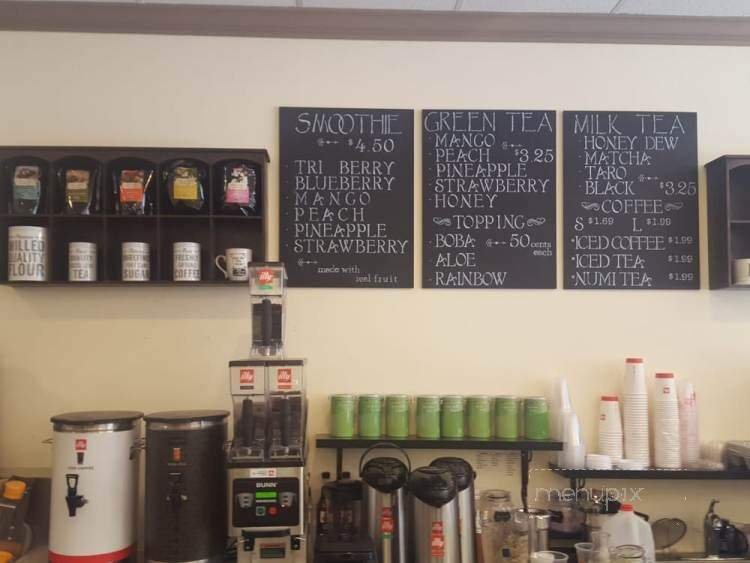 SMOOTHIE
$4.50
TRI BERRY
BLUEBERRY
MANGO
PEACH
PINEAPPLE
STRAWBERRY
made with
reel fruit
GREEN TEA
MANGO
PEACH $3.25
PINEAPPLE
STRAWBERRY
HONEY
TOPPING
BOBA 50 cents
each
ALOE
RAINBOW
MILK TEA
HONEY DEW
MATCHA
TARO
BLACK $3.25
COFFEE
S $1.69 L $1.99
*ICED COFFEE $1.99
*ICED TEA $1.99
*NUMI TEA $1.99
MILLED
QUALITY
FLOUR
QUALITY
TEA
SUGAR
FRESHLY
COFFEE
illy
illy
illy
illy
BUNN
illy
illy
illy
menupix